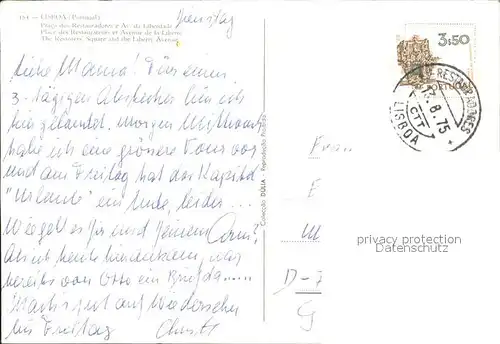 184 - LISBOA (Portugal)
Praça dos Restauradores e Av. da Liberdade
Place des Restaurateurs et Avenue de la Liberté
The Restorers' Square and the Liberty Avenue
Dienstag
Liebe Mama! Für einen
3-tägigen Abstecher bin ich
hier gelandet. Morgen Mittwoch
habe ich eine grössere Tour vor
und am Freitag hat das Kapitel
"Urlaub" ein Ende, leider...
Wie geht es Dir und Deinem Arm?
Als ich heute hier ankam, war
bereits von Otto ein Brief da.....
Mach's gut auf Wiedersehn
bis Freitag
Colecção DÚLIA - Reprodução Proibida
3$50
PORTUGAL
RESTAURADORES
13.8.75
CTT
LISBOA
Frau
E
M
D-7
G
privacy protection
Datenschutz